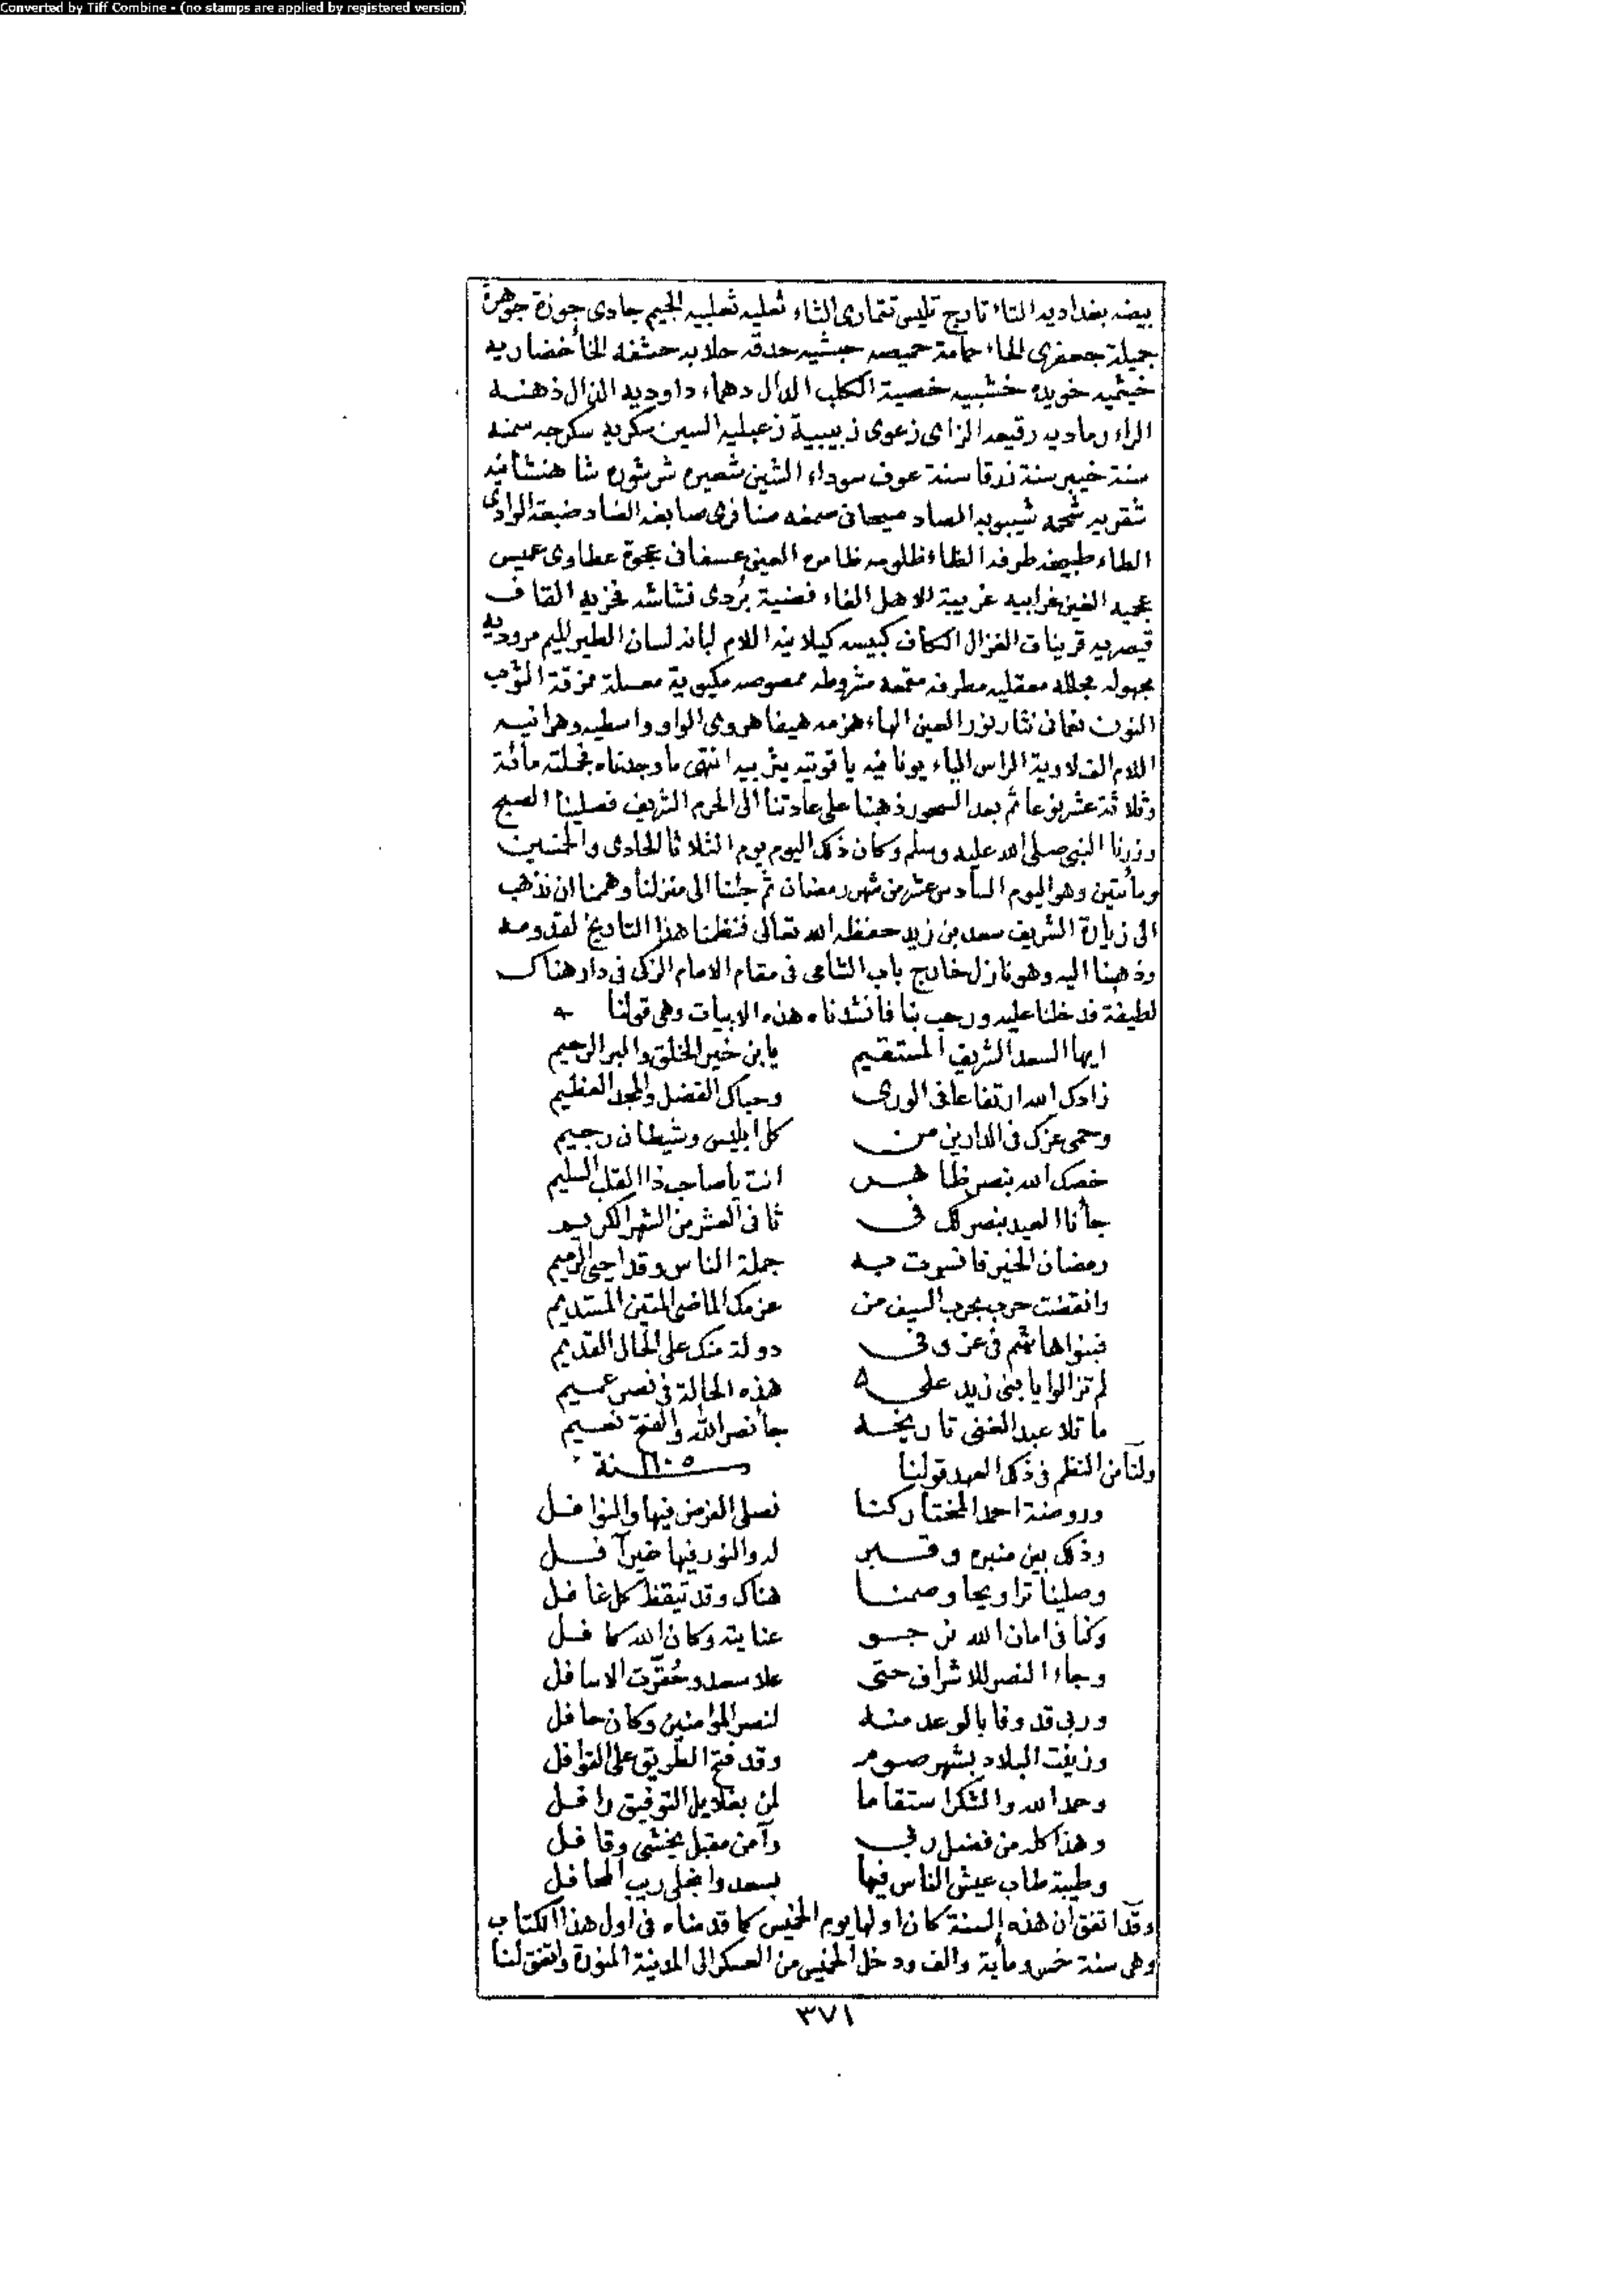 Converted by Tiff Combine - (no stamps are applied by registered version)
بيضه بغداديه التاء تاريج تليس تتمارى الثاء ثعليه ثعلبيه الجيم جادى جوزة جوهرة
جميلة جعفرى الحاء حمامة حميصه حبشيه حدقه حلابه حشفه الخا خضاريه
خيثميه خويده خشبيه خصية الكلب الدال دهماء داوديه الذال ذهنه
الراء رماديه رقيعه الزاى زعوى زبيبية زعبليه السين سكريه سكرجه سمنه
سنة خيبر سنة زرقا سنة عوف سوداء الشين شعيره شرشوره شاهنشانيه
شقريه شحمه شيبوبه الصاد صيحانى صمغه صنافرى صابغه الضاد ضبعة الوادى
الطاء طبيعه طرفه الظاء ظلومه ظاهره العين عسفانى عجوة عطاوى عميس
عجميه الغين غرابيه غريبية للاهل الفاء فضية بُردى فتاشه فخزيه القاف
قيصريه قرينات الغزال الكاف كبيسه كيلانيه اللام لبانه لسان الطير الميم مروديه
مجهوله مجلله معقليه مطرفه مقمعه مشروطه ممصوصه مكيوية معسلة ممزقة الثوب
النون نغمانى نثار نور العين الهاء هزمه هيفا هروى الواو واسطيه وهرانيه
اللام الف لاوية الراس الياء يونانيه ياقوتيه يثربيه انتهى ما وجدناه فجملته مائة
وثلاثة عشر نوعا ثم بعد السحور ذهبنا على عادتنا الى الحرم الشريف فصلينا الصبح
وزرنا النبي صلى الله عليه وسلم وكان ذلك اليوم يوم الثلاثا الحادى والخمسين
ومائتين وهو اليوم السادس عشر من شهر رمضان ثم جئنا الى منزلنا وهمنا ان نذهب
الى زيارة الشريف سعد بن زيد حفظه الله تعالى فنظمنا هذا التاريخ لقدومه
وذهبنا اليه وهو نازل خارج باب الشامى فى مقام الامام الزكى فى دار هناك
لطيفة فدخلنا عليه ورحب بنا فانشدناه هذه الابيات وهى قولنا
ايها السعد الشريف المستقيم يا بن خير الخلق والبر الرحيم
زادك الله ارتفاعا فى الورى وحباك الفضل والمجد العظيم
وحمى عزك فى الدارين من كل ابليس وشيطان رجيم
خصك الله بنصر ظاهر انت يا صاحب ذا القلب السليم
جأنا العيد بنصر لك فى ثانى العشر من الشهر الكريم
رمضان الخير فانسرت به جملة الناس وقد احيى الرميم
وانقضت حرب بحرب السيف من عزمك الماضى المتين المستديم
فبنوا هاشم فى عز وفى دولة منك على الحال القديم
لم تزالوا يا بنى زيد على هذه الحالة فى نصر عميم
ما تلا عبد الغنى تاريخه جا نصر الله والفتح نعيم
ولنا من النظم فى ذلك العهد قولنا سنة ١١٠٥
وروضة احمد المختار كنا نصلى الفرض فيها والنوافل
وذلك بين منبره وقبر له والنور فيها غير آفل
وصلينا تراويحا وصمنا هناك وقد تيقظ كل غافل
وكنا فى امان الله نرجو عنايته وكان الله كافل
وجاء النصر للاشراف حتى علا سعد وحُقّرت الاسافل
وربى قد وفا بالوعد منه لنصر المؤمنين وكان حافل
وزينت البلاد بشهر صوم وقد فتح الطريق على القوافل
وحمد الله والشكر استقاما لمن بغلايل التوفيق رافل
وهذا كله من فضل ربى وآمن مقبل يخشى وقافل
وطيبة طاب عيش الناس فيها بسعد وانجلى ريب المحافل
وقد اتفق ان هذه السنة كان اولها يوم الخميس كما قدمناه فى اول هذا الكتاب
وهى سنة خمس ومأية والف ودخل الخميس من العسكر الى المدينة المنورة واتفق لنا
٣٧١